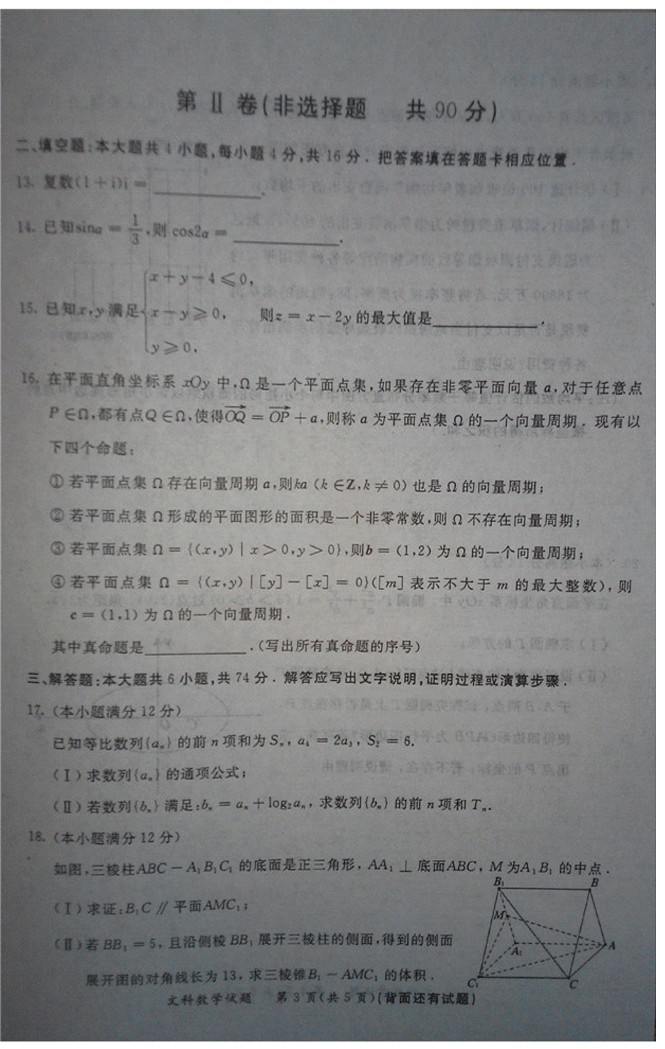 第 Ⅱ 卷(非选择题 共 90 分)
二、填空题:本大题共 4 小题,每小题 4 分,共 16 分. 把答案填在答题卡相应位置.
13. 复数(1+i)i = ________.
14. 已知sinα = 1/3,则 cos2α = ________.
15. 已知x,y 满足{x+y-4≤0, x-y≥0, y≥0, 则z = x-2y 的最大值是________.
16. 在平面直角坐标系 xOy 中,Ω 是一个平面点集,如果存在非零平面向量 a,对于任意点
P∈Ω,都有点Q∈Ω,使得OQ→ = OP→ + a,则称 a 为平面点集 Ω 的一个向量周期. 现有以
下四个命题:
① 若平面点集 Ω 存在向量周期 a,则ka (k∈Z,k≠0) 也是 Ω 的向量周期;
② 若平面点集 Ω 形成的平面图形的面积是一个非零常数,则 Ω 不存在向量周期;
③ 若平面点集 Ω = {(x,y) | x>0,y>0},则b = (1,2) 为 Ω 的一个向量周期;
④ 若平面点集 Ω = {(x,y) | [y]-[x] = 0}([m] 表示不大于 m 的最大整数),则
c = (1,1) 为 Ω 的一个向量周期.
其中真命题是________.(写出所有真命题的序号)
三、解答题:本大题共 6 小题,共 74 分. 解答应写出文字说明,证明过程或演算步骤.
17. (本小题满分 12 分)
已知等比数列{aₙ} 的前 n 项和为 Sₙ, a₄ = 2a₃, S₂ = 6.
(Ⅰ) 求数列{aₙ} 的通项公式;
(Ⅱ) 若数列{bₙ} 满足:bₙ = aₙ + log₂aₙ, 求数列{bₙ} 的前 n 项和 Tₙ.
18. (本小题满分 12 分)
如图,三棱柱ABC-A₁B₁C₁ 的底面是正三角形, AA₁ ⊥ 底面ABC, M 为A₁B₁ 的中点.
(Ⅰ) 求证:B₁C ∥ 平面AMC₁;
(Ⅱ) 若 BB₁ = 5, 且沿侧棱 BB₁ 展开三棱柱的侧面,得到的侧面
展开图的对角线长为 13, 求三棱锥B₁-AMC₁ 的体积.
B₁ B
M
A₁ A
C₁ C
文科数学试题 第 3 页(共 5 页)(背面还有试题)